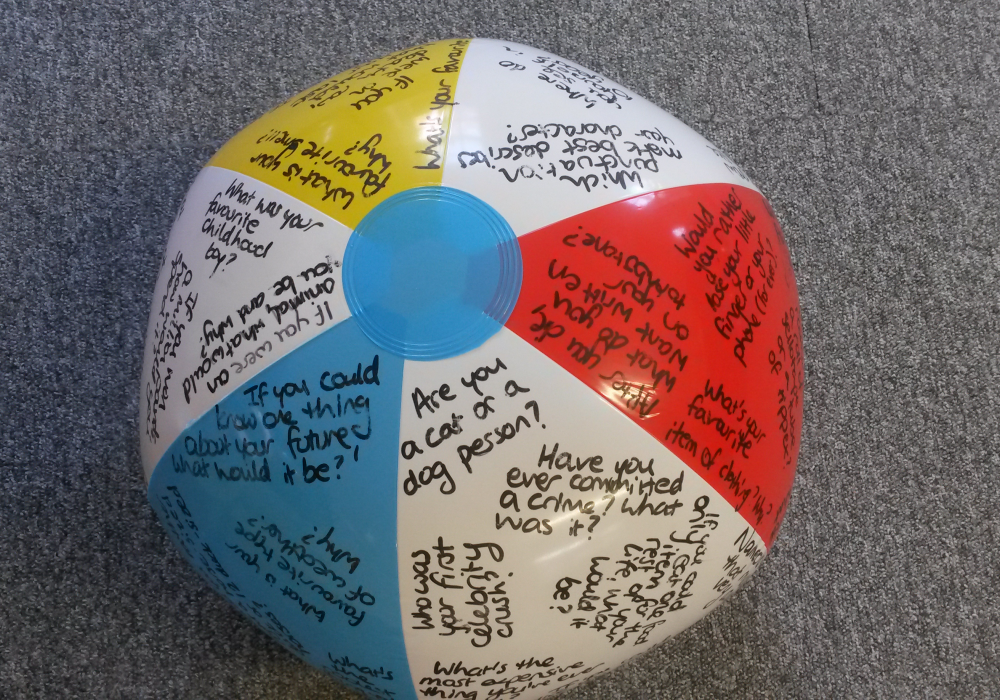 What's your favourite
What is your
favourite smell?
Why?
If you
were
Where do
Which
punctuation
mark best describes
your character?
Would
you rather
lose your little
finger or your
phone (for ever)?
After
you die,
what do you
want written
on your
tombstone?
What's your
favourite
item of clothing? Why?
What was your
favourite
childhood
toy?
If you were an
animal, what would
you be and
why?
If you could
know one thing
about your future,
what would it be?
What is your
favourite type
of weather?
Why?
What's
Are you
a cat or a
dog person?
Have you
ever committed
a crime? What
was it?
Who was
your first
celebrity
crush?
If you could
only eat one food
item for the
rest of your
life, what
would it
be?
What's the
most expensive
thing you've ever